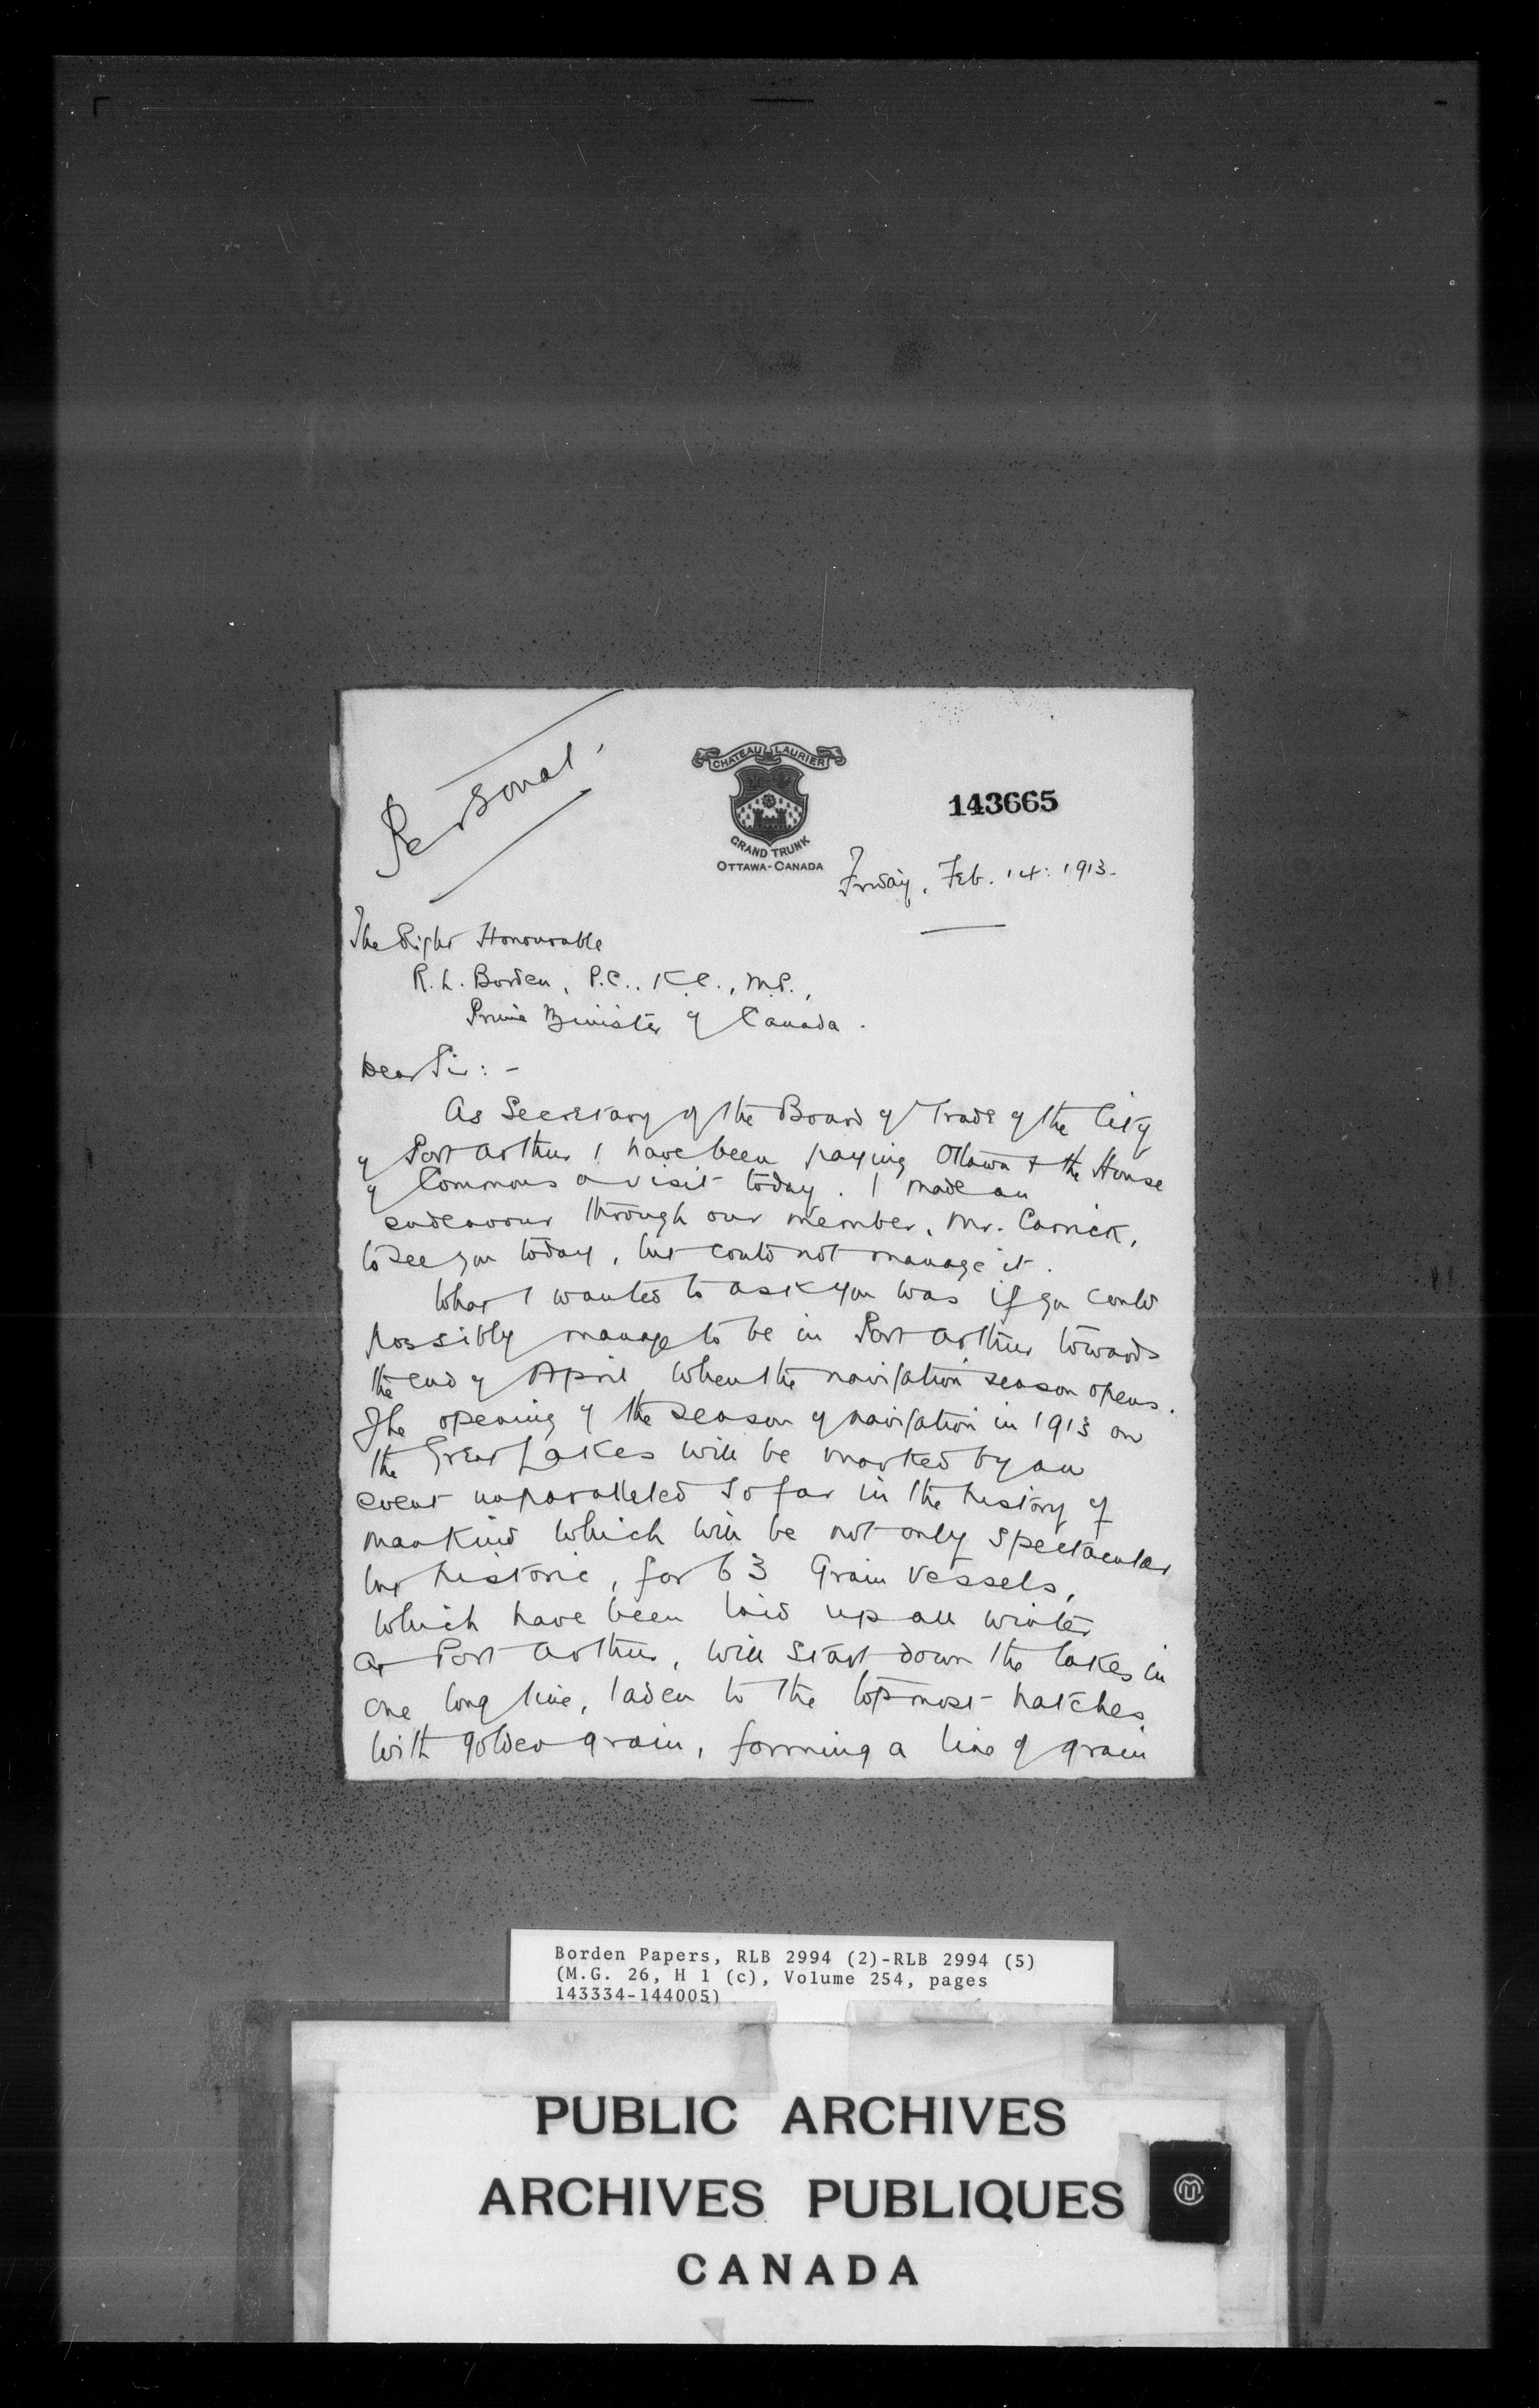 Personal.
CHATEAU LAURIER
GRAND TRUNK
OTTAWA-CANADA
143665
Friday, Feb. 14: 1913.
The Right Honourable
R. L. Borden, P.C., K.C., M.P.,
Prime Minister of Canada.
Dear Sir: -
As Secretary of the Board of Trade of the City
of Port Arthur I have been paying Ottawa & the House
of Commons a visit today. I made an
endeavour through our member, Mr. Carrick,
to see you today, but could not manage it.
What I wanted to ask you was if you could
possibly manage to be in Port Arthur towards
the end of April when the navigation season opens.
The opening of the season of navigation in 1913 on
the Great Lakes will be marked by an
event unparalleled so far in the history of
mankind which will be not only spectacular
but historic, for 63 Grain Vessels,
which have been laid up all winter
at Port Arthur, will start down the lakes in
one long line, laden to the topmost hatches
with golden grain, forming a line of grain
Borden Papers, RLB 2994 (2)-RLB 2994 (5)
(M.G. 26, H 1 (c), Volume 254, pages
143334-144005)
PUBLIC ARCHIVES
ARCHIVES PUBLIQUES
CANADA